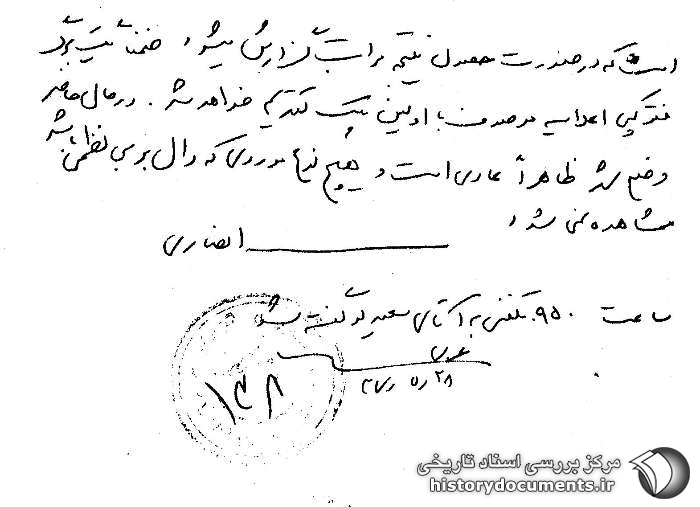 است که در صورت حصول نتیجه مراتب گزارش میشود ضمناً یک برگ
فتوکپی اعلامیه موصوف با اولین پیک تقدیم خواهد شد. در حال حاضر
وضع شهر ظاهراً عادی است و هیچ نوع موردی که دال بر بی نظمی باشد
مشاهده نمی شود
انصاری
ساعت ۹۵۰ تلفنی به آقای سعید گفته شد
۲۸
۱۳۸
مرکز بررسی اسناد تاریخی
historydocuments.ir